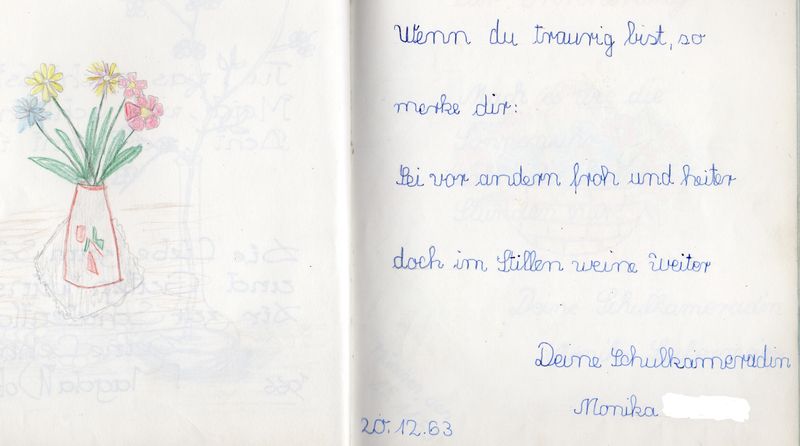 Wenn du traurig bist, so
merke dir:
Sei vor andern froh und heiter
doch im Stillen weine weiter
Deine Schulkameradin
Monika
20.12.63